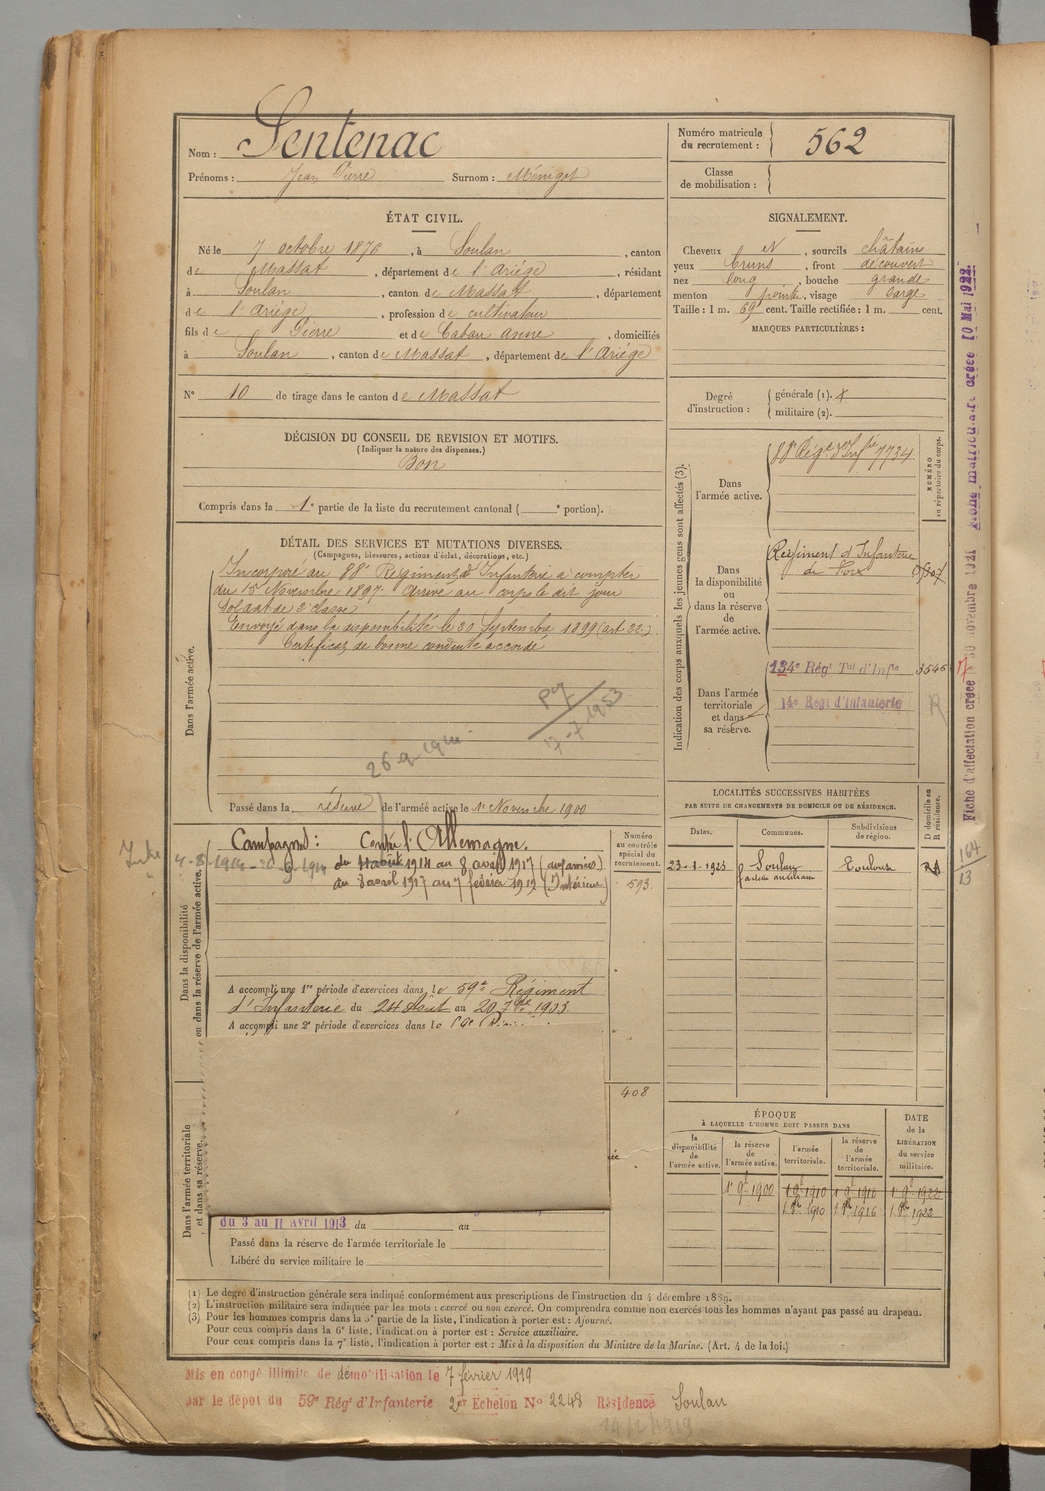 Nom : Sentenac
Prénoms : Jean Pierre Surnom : Ménigot
Numéro matricule du recrutement : 562
Classe de mobilisation :
ÉTAT CIVIL.
Né le 7 octobre 1876, à Soulan, canton
de Massat, département de l'Ariège, résidant
à Soulan, canton de Massat, département
de l'Ariège, profession de cultivateur
fils de Pierre et de Cabau Anne, domiciliés
à Soulan, canton de Massat, département de l'Ariège
N° 10 de tirage dans le canton de Massat
SIGNALEMENT.
Cheveux N, sourcils châtains
yeux bruns, front découvert
nez long, bouche grande
menton pointu, visage large
Taille : 1 m. 69 cent. Taille rectifiée : 1 m. cent.
MARQUES PARTICULIÈRES :
Degré d'instruction : générale (1).
militaire (2).
DÉCISION DU CONSEIL DE REVISION ET MOTIFS.
(Indiquer la nature des dispenses.)
Bon
Compris dans la 1e partie de la liste du recrutement cantonal ( e portion).
DÉTAIL DES SERVICES ET MUTATIONS DIVERSES.
(Campagnes, blessures, actions d'éclat, décorations, etc.)
Dans l'armée active.
Incorporé au 88e Régiment d'Infanterie à compter
du 15 Novembre 1897. Arrivé au corps le dit jour
Soldat de 2e classe
Envoyé dans la disponibilité le 30 Septembre 1899 (art. 22).
Certificat de bonne conduite accordé
17-7-1953
26.9.1914
Passé dans la réserve de l'armée active le 1er Novembre 1900
Indication des corps auxquels les jeunes gens sont affectés (3).
NUMÉRO au répertoire du corps.
Dans l'armée active.
88e Régt d'Infie 7734
Dans la disponibilité ou dans la réserve de l'armée active.
Régiment d'Infanterie
de Foix
Dans l'armée territoriale et dans sa réserve.
134e Régt Tal d'Infie 3546
Régt d'Infanterie
R
Fiche d'affectation créée le 30 novembre 1921
Fiche matricule créée 10 Mai 1922.
LOCALITÉS SUCCESSIVES HABITÉES
PAR SUITE DE CHANGEMENTS DE DOMICILE OU DE RÉSIDENCE.
Dates. Communes. Subdivisions de région. D domicile ou R résidence.
23-1-1923 Soulan Toulouse
facteur auxiliaire
164
13
Dans la disponibilité ou dans la réserve de l'armée active.
Numéro au contrôle spécial du recrutement.
Campagnes : Contre l'Allemagne.
4-8-1914
du 4 août 1914 au 8 avril 1917 (aux armées)
au 8 avril 1917 au 7 février 1919 (Intérieur)
593.
A accompli une 1re période d'exercices dans le 59e Régiment
d'Infanterie du 24 Août au 20 7bre 1903
A accompli une 2e période d'exercices dans le
Dans l'armée territoriale et dans sa réserve.
408
du 3 au 11 avril 1913 du au
Passé dans la réserve de l'armée territoriale le
Libéré du service militaire le
ÉPOQUE
À LAQUELLE L'HOMME DOIT PASSER DANS
DATE de la LIBÉRATION du service militaire.
la disponibilité de l'armée active.
la réserve de l'armée active.
l'armée territoriale.
la réserve de l'armée territoriale.
1er 9bre 1900 1 9bre 1910 1 9bre 1916 1 9bre 1922
1 8bre 1910 1 8bre 1916 1 8bre 1922
(1) Le degré d'instruction générale sera indiqué conformément aux prescriptions de l'instruction du 4 décembre 1889.
(2) L'instruction militaire sera indiquée par les mots : exercé ou non exercé. On comprendra comme non exercés tous les hommes n'ayant pas passé au drapeau.
(3) Pour les hommes compris dans la 5e partie de la liste, l'indication à porter est : Ajourné.
Pour ceux compris dans la 6e liste, l'indication à porter est : Service auxiliaire.
Pour ceux compris dans la 7e liste, l'indication à porter est : Mis à la disposition du Ministre de la Marine. (Art. 4 de la loi.)
Mis en congé illimité de démobilisation le 7 février 1919
par le dépôt du 59e Régt d'Infanterie 2er Echelon No 2248 Résidence Soulan
14/2/1919